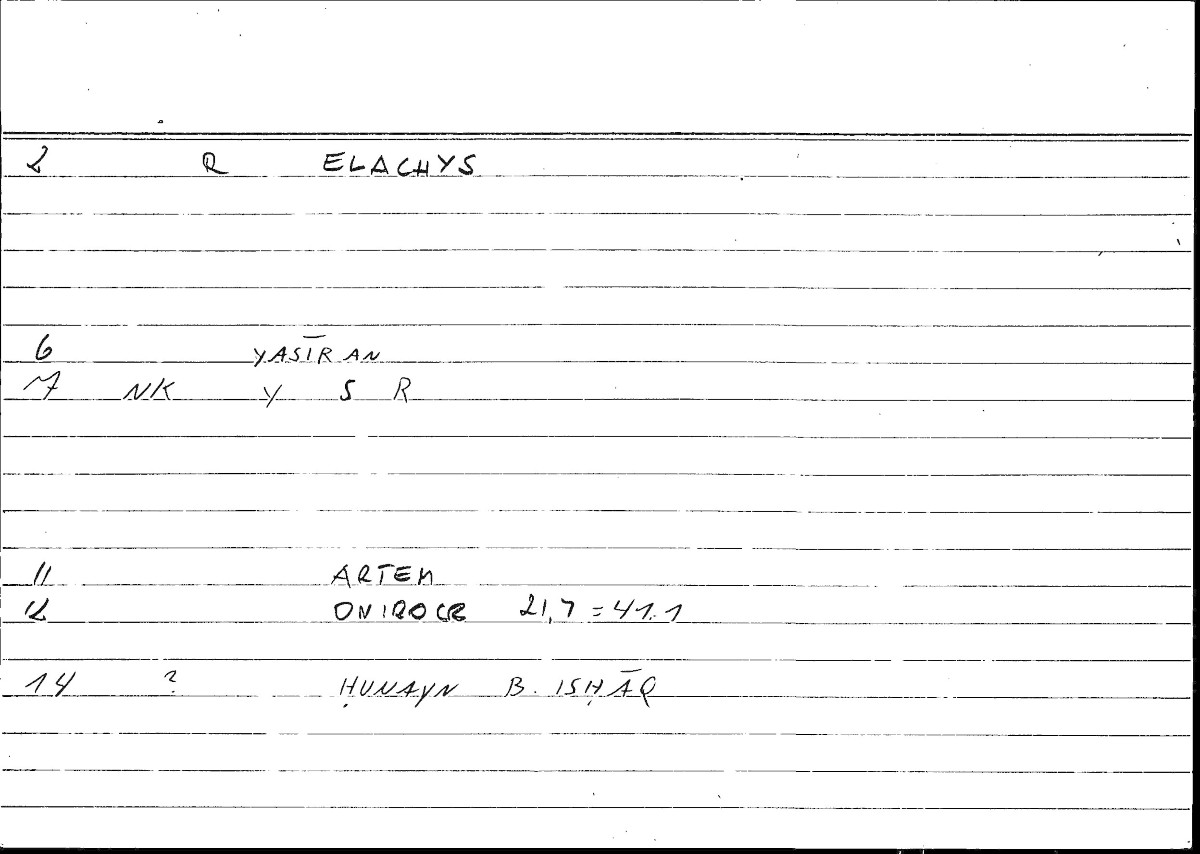 2 R ELACHYS
6 YASĪRAN
7 NK Y S R
11 ARTEM
12 ONIROCR 21,7 = 41.1
14 ? ḤUNAYN B. ISḤĀQ